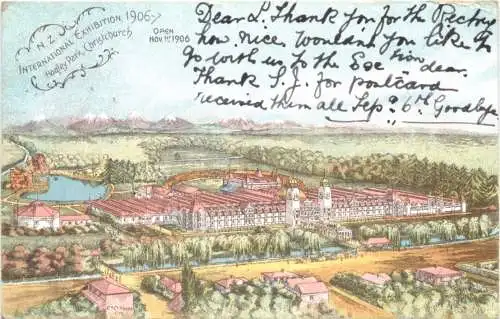 N.Z.
INTERNATIONAL EXHIBITION 1906-7
Hagley Park, Christchurch
OPEN
NOV 1st 1906
Dear L. Thank you for the Pectry
how nice. Wouldn't you like to
go with us to the
from dear.
Thank S.J. for postcard
received them all Sep. 6th Goodbye